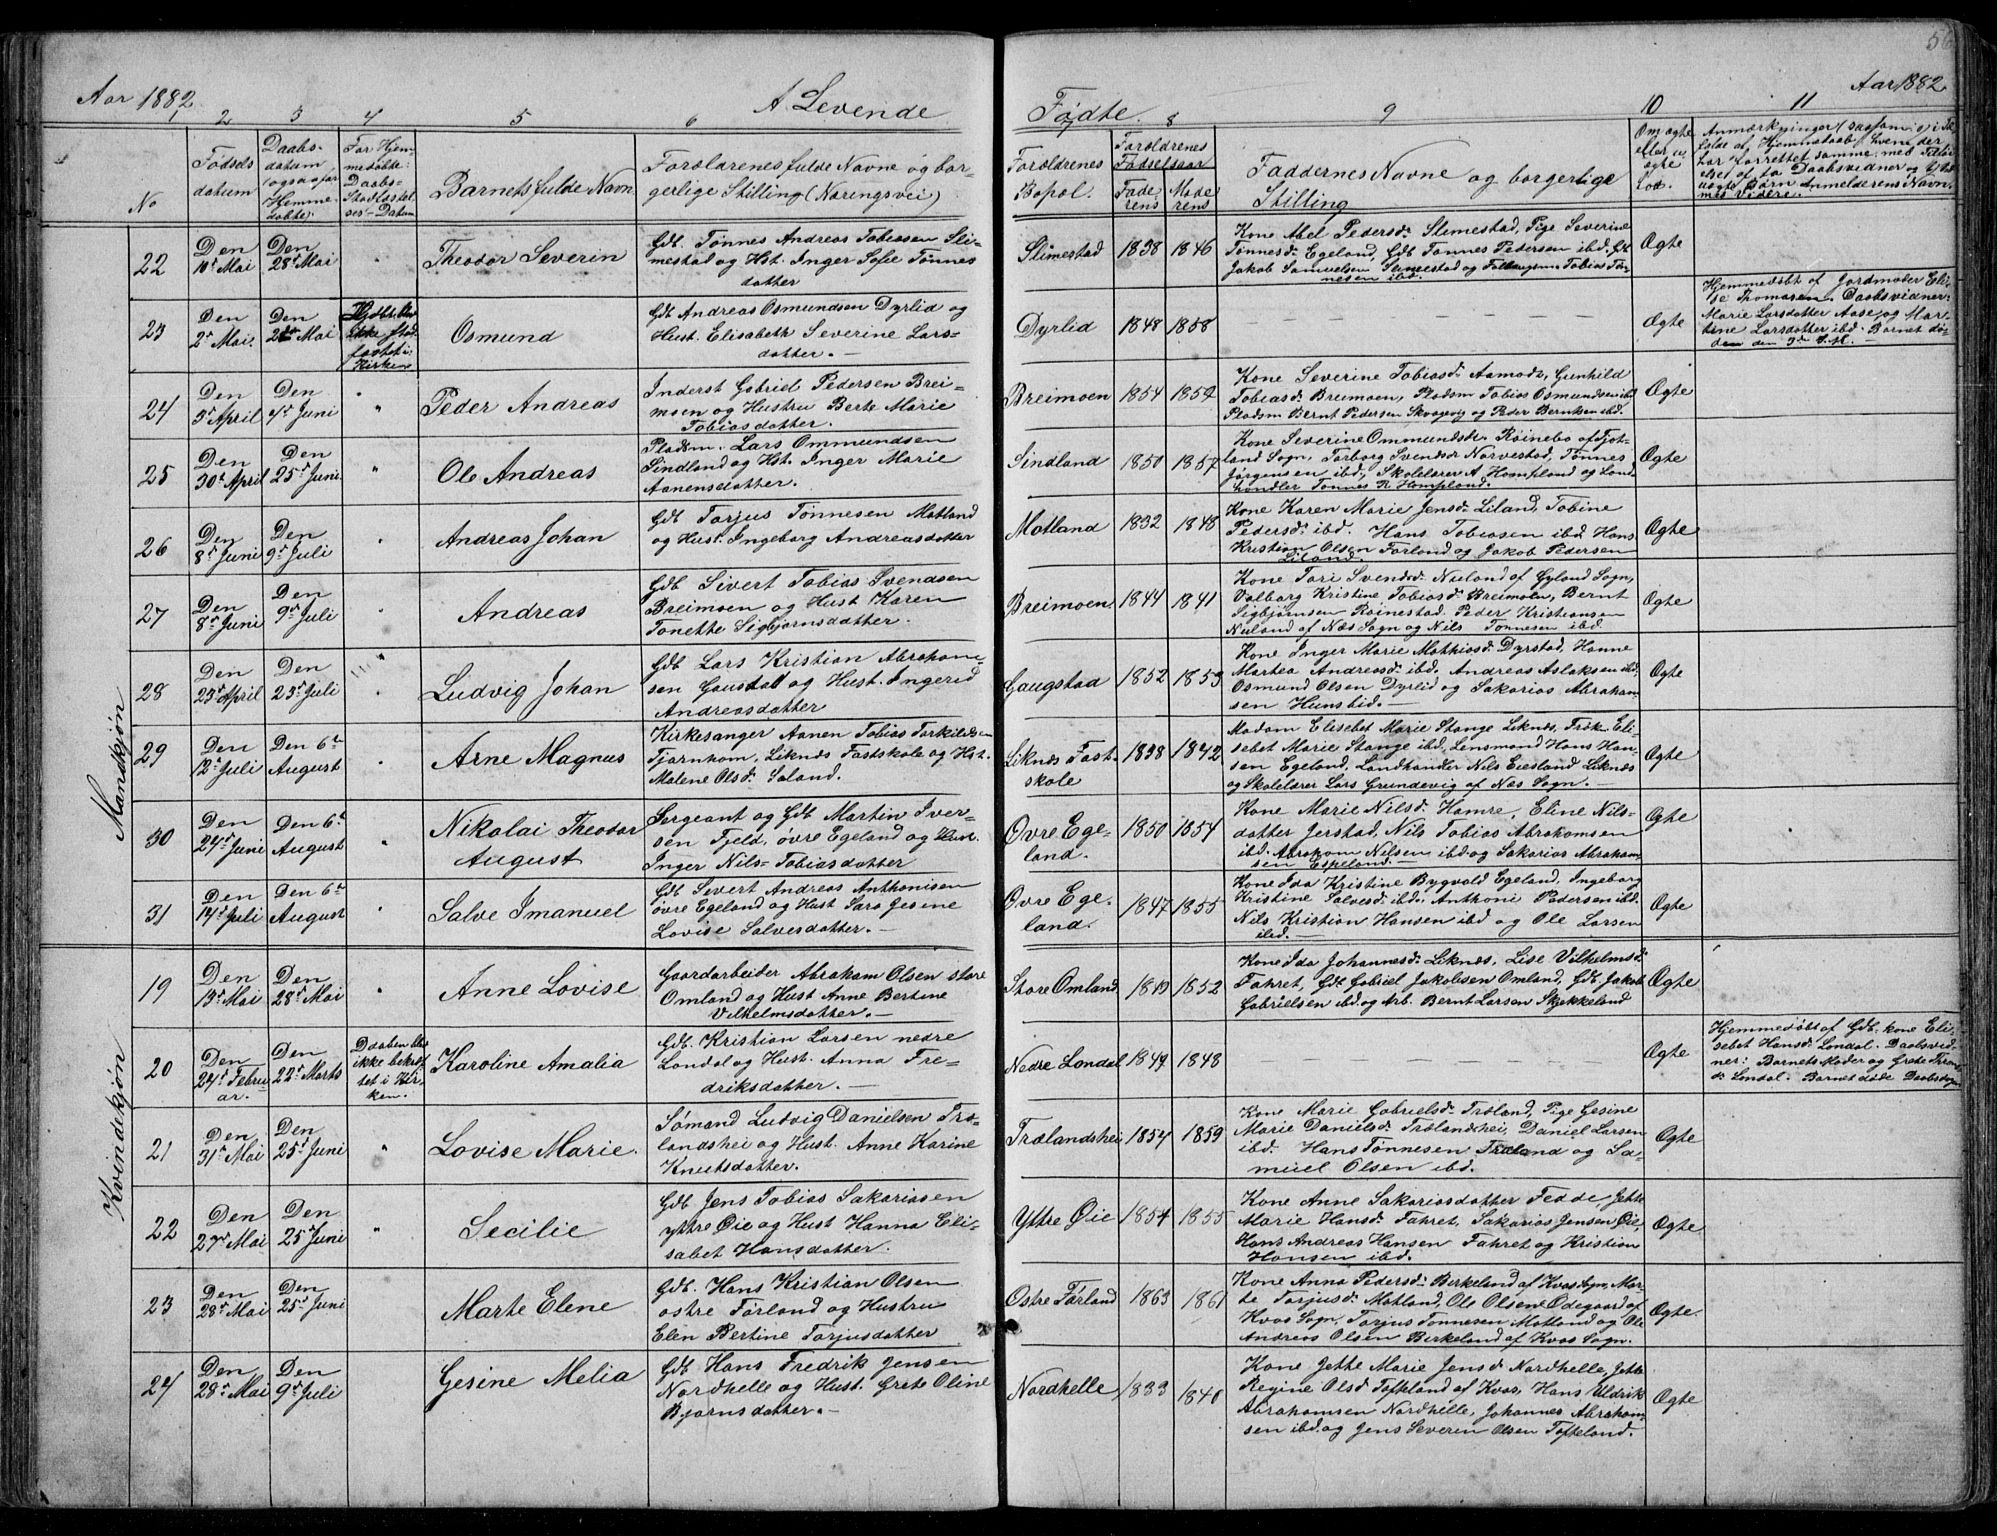 56
Aar 1882
A Levende
Fødte.
Aar 1882
1 2 3 4 5 6 7 8 9 10 11
No
Fødsels
datum
Daabs-
datum
ogsaa for
Hjemme-
døbte
For Hjem-
medøbte:
Daabs-
Stadfæstel-
ses-Datum
Barnets fulde Navn
Forældrenes fulde Navne og bor-
gerlige Stilling (Næringsvei)
Forældrenes
Bopæl
Forældrenes
Fødselsaar
Fade-
rens
Mode-
rens
Faddernes Navne og borgerlige
Stilling
Om ægte
eller u-
ægte
født
Mandkjøn
22
Den
10de Mai
Den
28de Mai
"
Theodor Severin
Gdb. Tønnes Andreas Tobiassen Sli-
mestad og Hst. Inger Sofie Tønnes
datter
Slimestad
1838
1846
Kone Abel Pedersd. Slimestad, Pige Severine
Tønnesd. Egeland, Gdb Tønnes Pedersen ibd, Gdb
Jakob Samuelsen Slimestad og Tobias Tøn-
nesen ibd.
Ægte
23
Den
2den Mai
Den
2den Mai
Ikke stad-
fæstet i
Kirken
Osmund
Gdb Andreas Osmundsen Dyrlid og
Hust. Elisabeth Severine Lars-
datter. —
Dyrlid
1848
1858
Ægte
Hjemmedøbt af Jordmoder Eli-
se Thomasen. Daabsvidner:
Marie Larsdatter Aase og Mar-
tine Larsdatter ibd. Barnet dø-
de den 3de s. M. —
24
Den
5te April
Den
4de Juni
"
Peder Andreas
Inderst Gabriel Pedersen Brei-
moen og Hustru Berte Marie
Tobiasdatter.
Breimoen
1854
1859
Kone Severine Tobiasd. Aamodt, Gunhild
Tobiasd. Breimoen, Pladsm Tobias Osmundsen ibd
Pladsm Bernt Pedersen Skvagevig og Peder Berntsen ibd.
Ægte
25
Den
30te April
Den
25de Juni
"
Ole Andreas
Pladsm. Lars Ommundsen
Sindland og Hst. Inger Marie
Aanensdatter.
Sindland
1850
1857
Kone Severine Ommundsd. Røinebo af Fjot-
land Sogn, Torborg Svendsd. Narvestad, Tønnes
Jørgensen ibd., Skolelærer A. Hompland og Land-
handler Tønnes R. Hompland.
Ægte
26
Den
8de Juni
Den
9de Juli
"
Andreas Johan
Gdb Torjus Tønnesen Motland
og Hust. Ingeborg Andreasdatter
Motland
1832
1848
Kone Karen Marie Jensd. Liland, Tobine
Pedersd. ibd. Hans Tobiasen ibd Hans
Kristian Olsen Førland og Jakob Pedersen
Liland.
Ægte
27
Den
8de Juni
Den
9de Juli
"
Andreas
Gdb Sivert Tobias Svendsen
Breimoen og Hust Karen
Tonette Sigbjørnsdatter.
Breimoen
1844
1841
Kone Tori Svendsd. Nuland af Gyland Sogn,
Valborg Kristine Tobiasd. Breimoen, Bernt
Sigbjørnsen Røinestad. Peder Kristiansen
Nuland af Næs Sogn og Nils Tønnesen ibd.
Ægte
28
Den
23de April
Den
23de Juli
"
Ludvig Johan
Gdb Lars Kristian Abraham-
sen Gaustad og Hust. Ingerid
Andreasdatter
Gaugstad
1852
1853
Kone Inger Marie Mathiasd. Dyrstad, Hanne
Martea Andreasd. ibd. Andreas Aslaksen ibd.
Osmund Olsen Dyrlid og Sakarias Abraham-
sen Hunsbid. —
Ægte
29
Den
12te Juli
Den 6te
August
"
Arne Magnus
Kirkesanger Aanen Tobias Torkildsen
Tjørnhom, Liknæs Fastskole og Hst.
Malene Olsd. Saland.
Liknæs Fast-
skole
1838
1842
Madam Elisebet Marie Stange Liknæs, Frøk. Eli-
sebet Marie Stange ibd., Lensmand Hans Han-
sen Egeland, Landhandler Nils Eiesland Liknæs
og Skolelærer Lars Grundevig af Næs Sogn.
Ægte
30
Den
24de Juni
Den 6te
August
"
Nikolai Theodor
August
Sergeant og Gdb Martin Iver-
sen Fjeld, øvre Egeland og Hust.
Inger Nils-Tobiasdatter
Øvre Ege-
land.
1850
1854
Kone Marie Nilsd. Hamre, Eline Nils-
datter Jerstad, Nils Tobias Abrahamsen
ibd. Abraham Nilsen ibd. og Sakarias Abraham-
sen Espeland. —
Ægte
31
Den
14de Juli
Den 6te
August
"
Salve Imanuel
Gdb Severt Andreas Anthonisen
øvre Egeland og Hust Sara Gesine
Lovise Salvesdatter. —
Øvre Ege-
land.
1847
1855
Kone Ida Kristine Bygvold Egeland, Ingeborg
Kristine Salvesd. ibd., Anthoni Pedersen ibd.
Nils Kristian Hansen ibd og Ole Larsen
ibd. —
Ægte
Kvindekjøn
19
Den
13de Mai
Den
28de Mai
"
Anne Lovise
Gaardarbeider Abraham Olsen store
Omland og Hust Anne Bertine
Vilhelmsdatter. —
Store Omland
1849
1852
Kone Ida Johannesd. Liknæs, Lise Vilhelmsd.
Fahret, Gdb Gabriel Jakobsen Omland, Gdb Jakob
Gabrielsen ibd og Arb. Bernt Larsen Skjekkeland
Ægte
20
Den
24de Febru-
ar.
Den
22de Marts
Daaben blev
ikke bekræf-
tet i Kir-
ken.
Karoline Amalia
Gdb. Kristian Larsen nedre
Londal og Hust. Anna Fre-
driksdatter. —
Nedre Londal
1849
1848
Ægte
Hjemmedøbt af Gdb. kone Eli-
sebet Hansd. Londal. Daabsvid-
ner: Barnets Moder og Grete Thron-
d. Londal. Barnet døde Daabsdagen
21
Den
31te Mai
Den
25de Juni
"
Lovise Marie.
Sømand Ludvig Danielsen Træ-
landshei og Hust. Anne Karine
Knutsdatter.
Trælandshei
1854
1859
Kone Marie Gabrielsd. Træland, Pige Gesine
Marie Danielsd. Trælandshei, Daniel Larsen
ibd. Hans Tønnesen Træland og Sa-
muel Olsen ibd.
Ægte
22
Den
27de Mai
Den
25de Juni
"
Secilie
Gdb Jens Tobias Sakariasen
yttre Øie og Hust Hanna Eli-
sabet Hansdatter.
Yttre Øie
1854
1855
Kone Anne Sakariasdatter Fedde, Jette
Marie Hansd. Fahret, Sakarias Jensen Øie,
Hans Andreas Hansen Fahret og Kristian
Hansen ibd.
Ægte
23
Den
28de Mai
Den
25de Juni
Marte Elene
Gdb. Hans Kristian Olsen
østre Førland og Hustru
Elen Bertine Torjusdatter
Østre Førland
1863
1861
Kone Anna Pedersd. Birkeland af Kvas Sogn, Mar-
te Torjusd. Motland, Ole Olsen Ødegaard af
Kvas Sogn, Torjus Tønnesen Motland og Ole
Andreas Olsen Birkeland af Kvas Sogn.
Ægte.
24
Den
28de Mai
Den
9de Juli
Gesine Melia
Gdb Hans Fredrik Jensen
Nordhelle og Hust. Grete Oline
Bjørnsdatter. —
Nordhelle
1833
1840
Kone Jette Marie Jensd Nordhelle, Jette
Regine Olsd Tofteland af Kvas, Hans Uldrik
Abrahamsen Nordhelle, Johannes Abraham-
sen ibd. og Jens Severin Olsen Tofteland.
Ægte